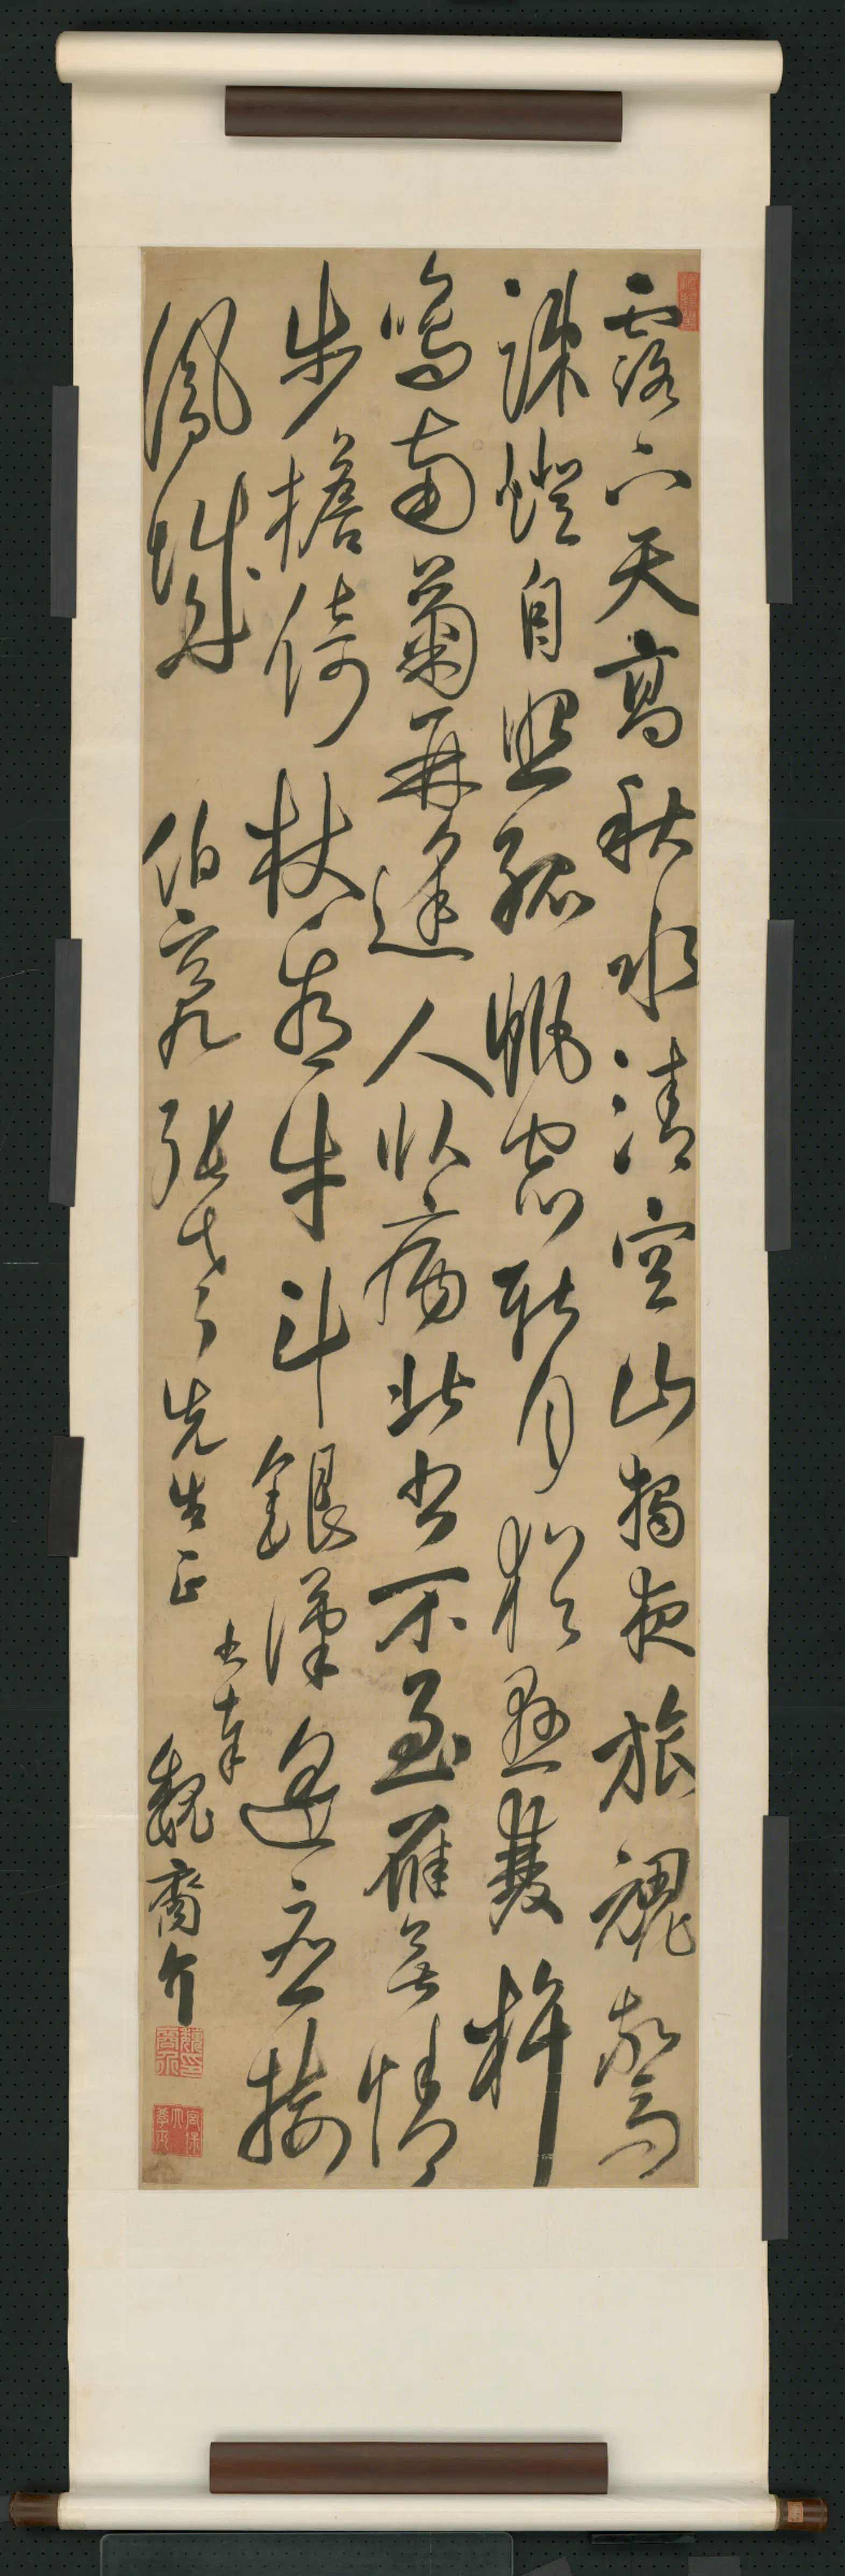 露下天高秋水清空山獨夜旅魂驚
疎燈自照孤帆宿新月猶懸雙杵
鳴南菊再逢人臥病北書不至雁無情
步檐倚杖看牛斗銀漢遙應接
鳳城
伯 張 先生正
魏裔介
魏裔介印
宮保大學士